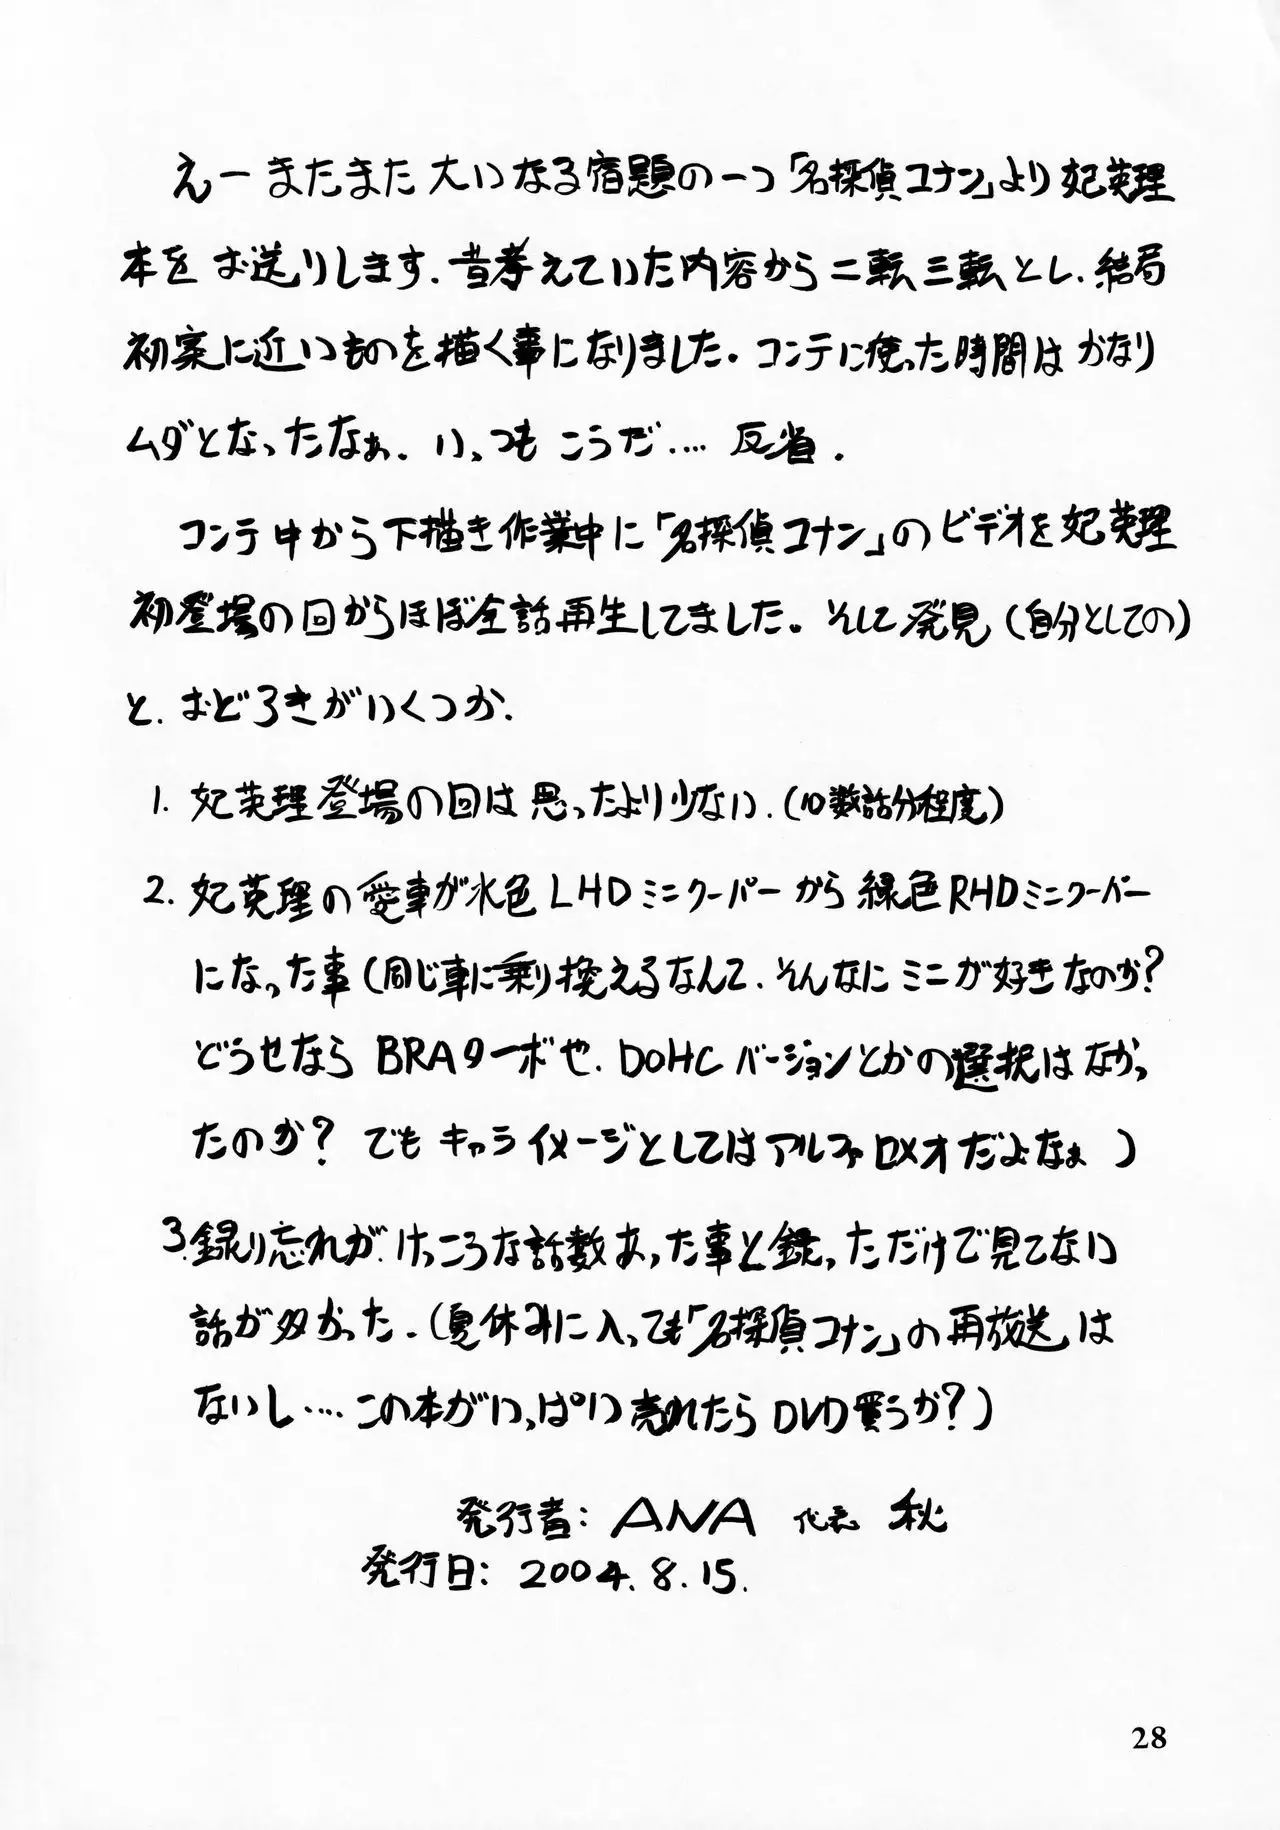 えーまたまた大いなる宿題の一つ「名探偵コナン」より妃英理
本をお送りします.昔考えていた内容から二転三転とし.結局
初案に近いものを描く事になりました。コンテに使った時間はかなり
ムダとなったなぁ.いっつもこうだ....反省.
コンテ中から下描き作業中に「名探偵コナン」のビデオを妃英理
初登場の回からほぼ全話再生してました。そして発見(自分としての)
と.おどろきがいくつか.
1.妃英理登場の回は思ったより少ない.(10数話分程度)
2.妃英理の愛車が水色LHDミニクーパーから緑色RHDミニクーパー
になった事(同じ車に乗り換えるなんて.そんなにミニが好きなのか?
どうせなら BRAターボや.DOHCバージョンとかの選択はなかっ
たのか? でもキャライメージとしてはアルファロメオだよなぁ)
3.録り忘れが.けっこうな話数あった事と録っただけで見てない
話が多かった.(夏休みに入っても「名探偵コナン」の再放送は
ないし....この本がいっぱい売れたらDVD買うか?)
発行者:ANA 代表 秋
発行日:2004.8.15.
28